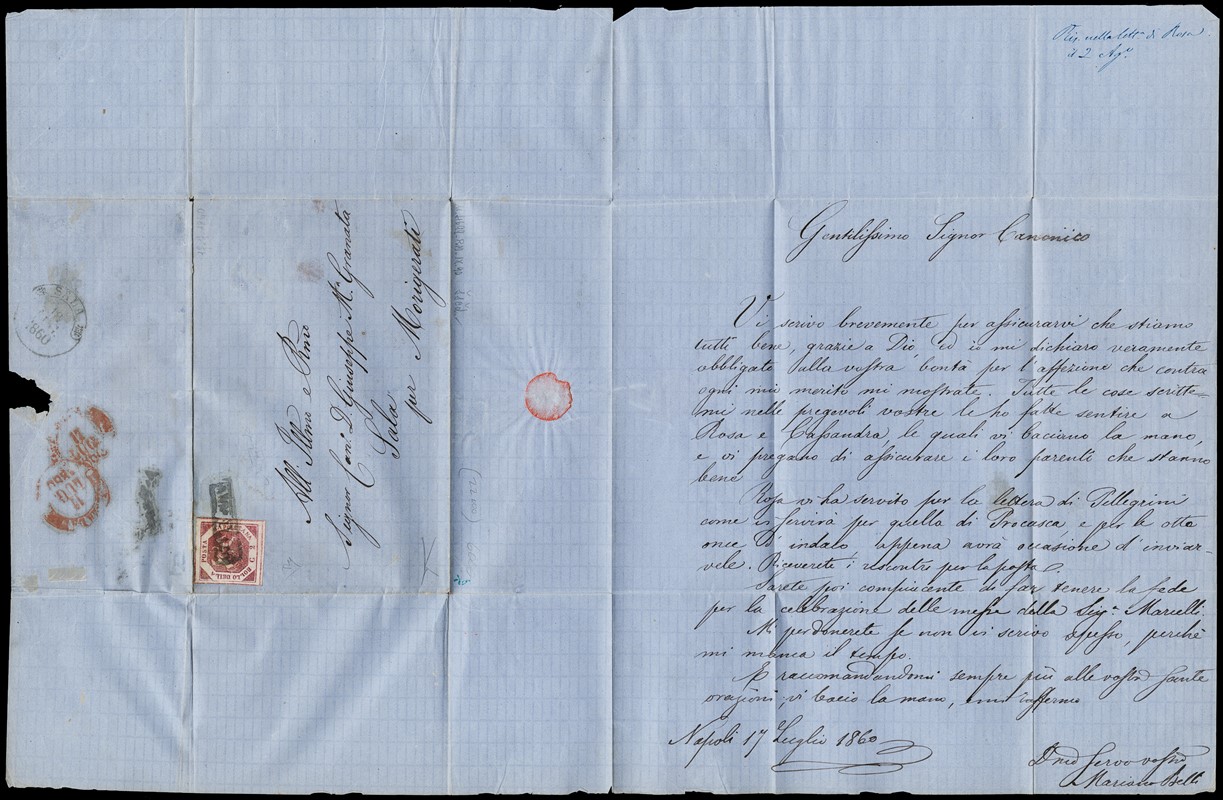 Ris. nella lett.ª di Rosa
il 2 Ag.º
Gentilissimo Signor Canonico
Vi scrivo brevemente per assicurarvi che stiamo
tutti bene, grazie a Dio, ed io mi dichiaro veramente
obbligato alla vostra bontà per l'affezione che contra
ogni mio merito mi mostrate. Tutte le cose scritte=
mi nelle pregevoli vostre le ho fatte sentire a
Rosa e Cassandra, le quali vi baciano la mano,
e vi pregano di assicurare i loro parenti che stanno
bene
Rosa vi ha servito per la lettera di Pellegrini
come vi servirà per quella di e per le otto
once d'indaco appena avrà occasione d'inviar=
vele. Riceverete i riscontri per la posta.
Sarete poi compiacente di far tenere la fede
per la celebrazione delle messe della Sig.ª Marcelli.
Mi perdonerete se non vi scrivo spesso, perchè
mi manca il tempo.
E raccomandandomi sempre più alle vostre sante
orazioni, vi bacio la mano, e mi raffermo
Napoli 17 Luglio 1860
servo vostro
Mariano Belli
All' Ill.mo e R.mo
Signor Can.º D. Giuseppe M.ª Granata
Sala
per Morigerati
SALA
1860
BOLLO DELLA POSTA NAPOLETANA
G. 2